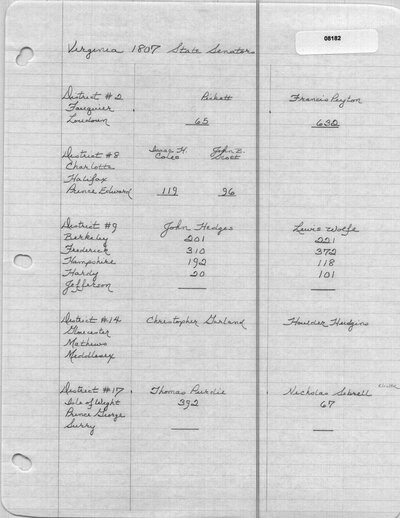 08182
Virginia 1807 State Senators
District #2 Pickett Francis Peyton
Fauquier
Loudoun 65 632
District #8 Isaac H. Coles John B. Scott
Charlotte
Halifax
Prince Edward 119 96
District #9 John Hedges Lewis Wolfe
Berkeley 201 221
Frederick 310 372
Hampshire 192 118
Hardy 20 101
Jefferson
District #14 Christopher Garland Houlder Hudgins
Gloucester
Mathews
Middlesex
District #17 Thomas Purdie Nicholas Sebrell
Isle of Wight 392 67
Prince George
Surry